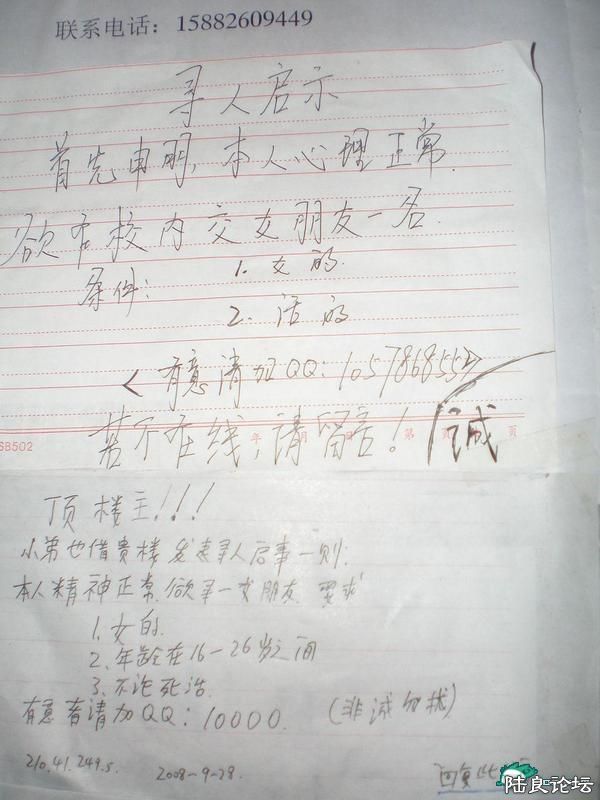 联系电话：15882609449
寻人启示
首先申明，本人心理正常.
欲在校内交女朋友一名.
条件：1. 女的.
2. 活的
<有意请加QQ：105786855>
若不在线，请留言！誠
年 月 第 页
68502
顶楼主！！！
小弟也借贵楼发表寻人启事一则：
本人精神正常.欲寻一女朋友.要求
1.女的.
2.年龄在16－26岁之间
3.不论死活.
有意者请加QQ：10000. （非诚勿扰）
210.41.249.5. 2008-9-28. 回复此
陆良论坛